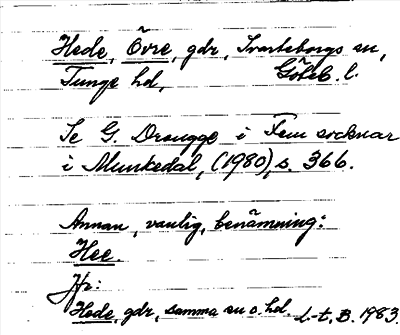 Hede, Övre, gdr, Svarteborgs sn,
Tunge hd, Göteb. l.
Se G. Drougge i Fem socknar
i Munkedal, (1980), s. 366.
Annan, vanlig, benämning:
Hee.
Jfr:
Hede, gdr, samma sn o. hd. L-t, B. 1983